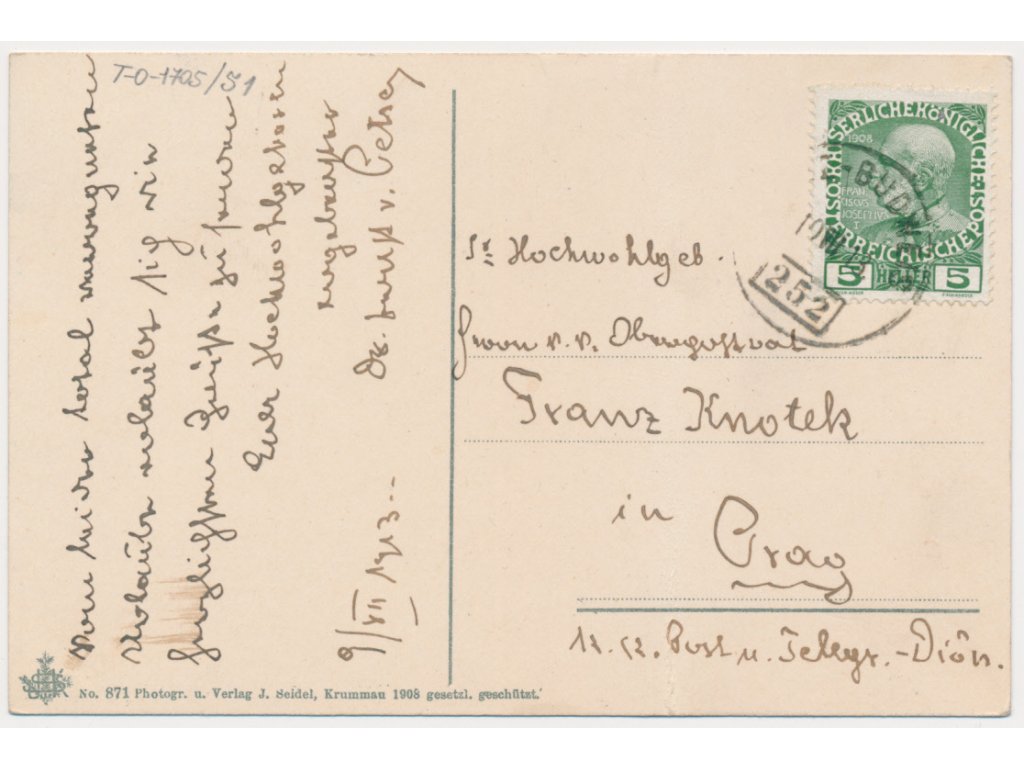 T-O-1705/51
Vom leider total verregneten
Urlaube erlaube ich mir
herzlichste Grüße zu senden
Euer Hochwohlgeboren
ergebenster
Dr.
9/VII 1913.
Sr. Hochwohlgeb.
Herrn k. k. Oberpostrat
Franz Knotek
in
Prag
k. k. Post u. Telegr.-Dion.
KAISERLICHE KÖNIGLICHE
ÖSTERREICHISCHE POST
1908
FRAN
CISCUS
JOSEPHUS
I
5 HELLER 5
BUDW
252
No. 871 Photogr. u. Verlag J. Seidel, Krummau 1908 gesetzl. geschützt.